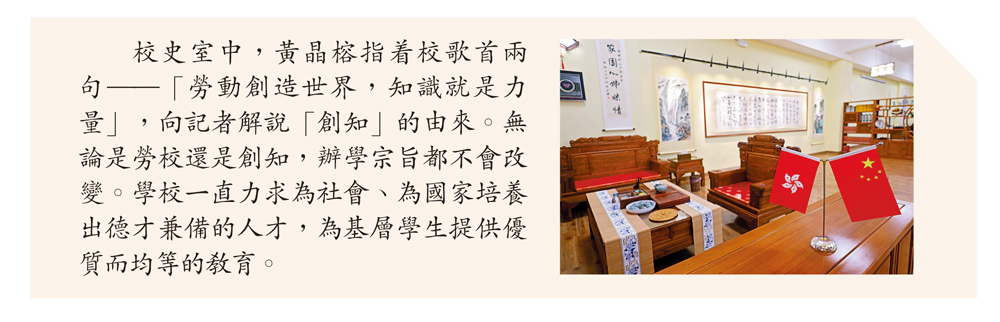 校史室中，黃晶榕指着校歌首兩
句——「勞動創造世界，知識就是力
量」，向記者解說「創知」的由來。無
論是勞校還是創知，辦學宗旨都不會改
變。學校一直力求為社會、為國家培養
出德才兼備的人才，為基層學生提供優
質而均等的教育。